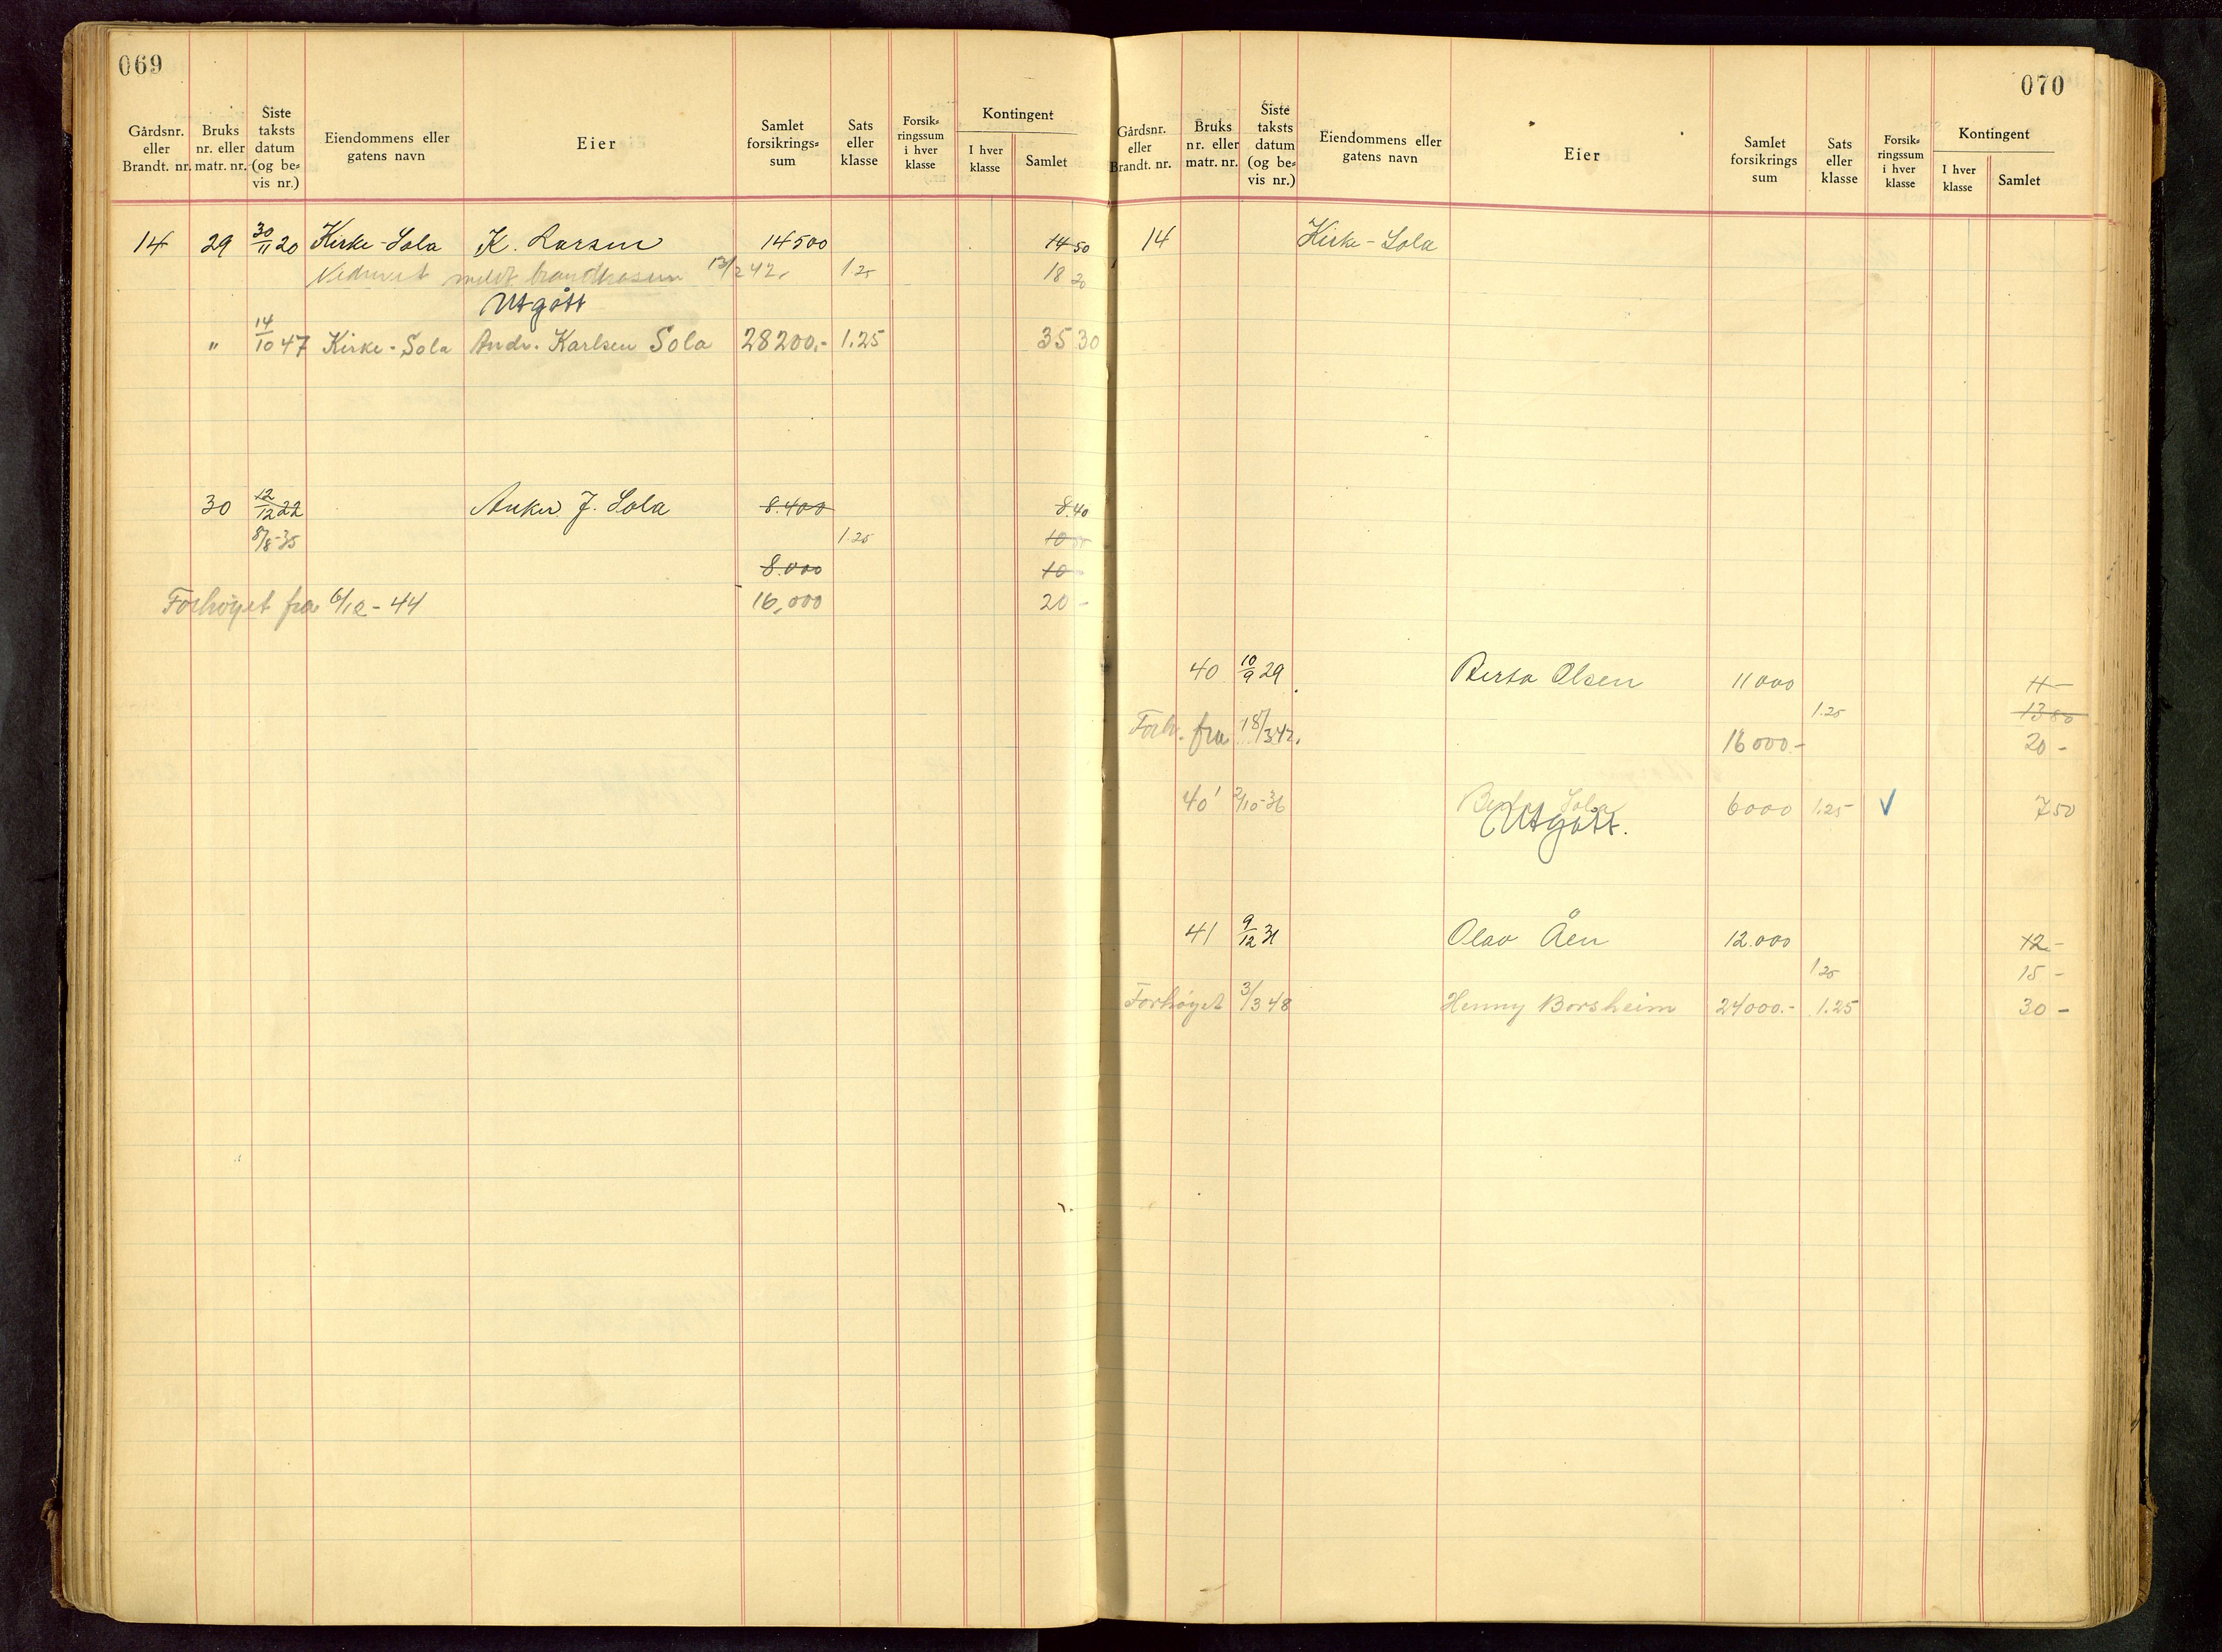 069
Gårdsnr. eller Brandt. nr. Bruks nr. eller matr. nr. Siste taksts datum (og be= vis nr.) Eiendommens eller gatens navn Eier Samlet forsikrings= sum Sats eller klasse Forsik= ringssum i hver klasse Kontingent I hver klasse Samlet
14 29 30/11 20 Kirke-Sola K. Larsen 14500 14 50
Nedrevet meldt brandkassen 13/2 42. 1.25 18 20
Utgått
" 14/10 47 Kirke-Sola Andr. Karlsen Sola 28200.- 1.25 35 30
30 12/12 22 Anker J. Sola 8.400 8.40
8/8-35 1.25 10
8.000 10
Forhøyet fra 6/12-44 16,000 20 -
070
Gårdsnr. eller Brandt. nr. Bruks nr. eller matr. nr. Siste taksts datum (og be= vis nr.) Eiendommens eller gatens navn Eier Samlet forsikrings sum Sats eller klasse Forsik= ringssum i hver klasse Kontingent I hver klasse Samlet
14 Kirke-Sola
40 10/9 29 Berta Olsen 11000 11 -
1.25 13 80
Forh. fra 18/3 42. 16000.- 20 -
40' 2/10-36 Sola 6000 1.25 ✓ 7 50
Utgått.
41 9/12 31 Olav Åen 12.000 12.-
1.25 15 -
Forhøyet 3/3 48 Henny Borsheim 24000.- 1.25 30 -